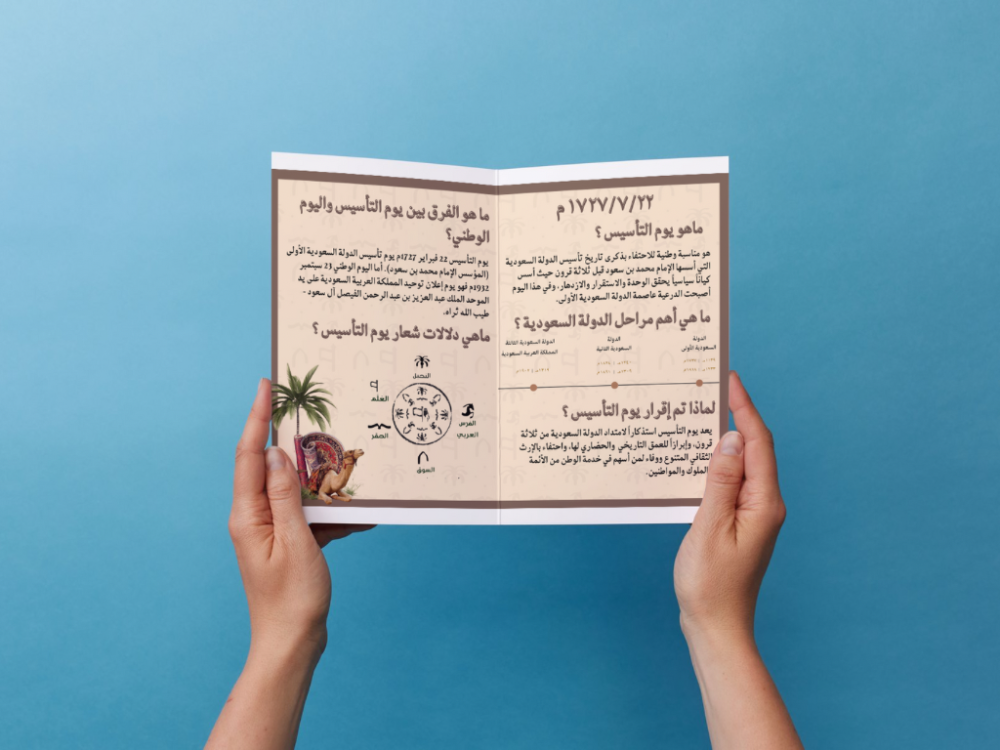 ١٧٢٧/٧/٢٢ م
ماهو يوم التأسيس ؟
هو مناسبة وطنية للاحتفاء بذكرى تاريخ تأسيس الدولة السعودية
التي أسسها الإمام محمد بن سعود قبل ثلاثة قرون حيث أسس
كياناً سياسياً يحقق الوحدة والاستقرار والازدهار، وفي هذا اليوم
أصبحت الدرعية عاصمة الدولة السعودية الأولى.
ما هي أهم مراحل الدولة السعودية ؟
الدولة
السعودية الأولى
الدولة
السعودية الثانية
الدولة السعودية الثالثة
المملكة العربية السعودية
لماذا تم إقرار يوم التأسيس ؟
يعد يوم التأسيس استذكاراً لامتداد الدولة السعودية من ثلاثة
قرون، وإبرازاً للعمق التاريخي والحضاري لها، واحتفاء بالإرث
الثقافي المتنوع ووفاء لمن أسهم في خدمة الوطن من الأئمة
الملوك والمواطنين.
ما هو الفرق بين يوم التأسيس واليوم
الوطني؟
يوم التأسيس 22 فبراير 1727م يوم تأسيس الدولة السعودية الأولى
(المؤسس الإمام محمد بن سعود). أما اليوم الوطني 23 سبتمبر
1932م فهو يوم إعلان توحيد المملكة العربية السعودية على يد
الموحد الملك عبد العزيز بن عبد الرحمن الفيصل آل سعود -
طيب الله ثراه.
ماهي دلالات شعار يوم التأسيس ؟
النخيل
العلم
الفرس
العربي
الصقر
السوق